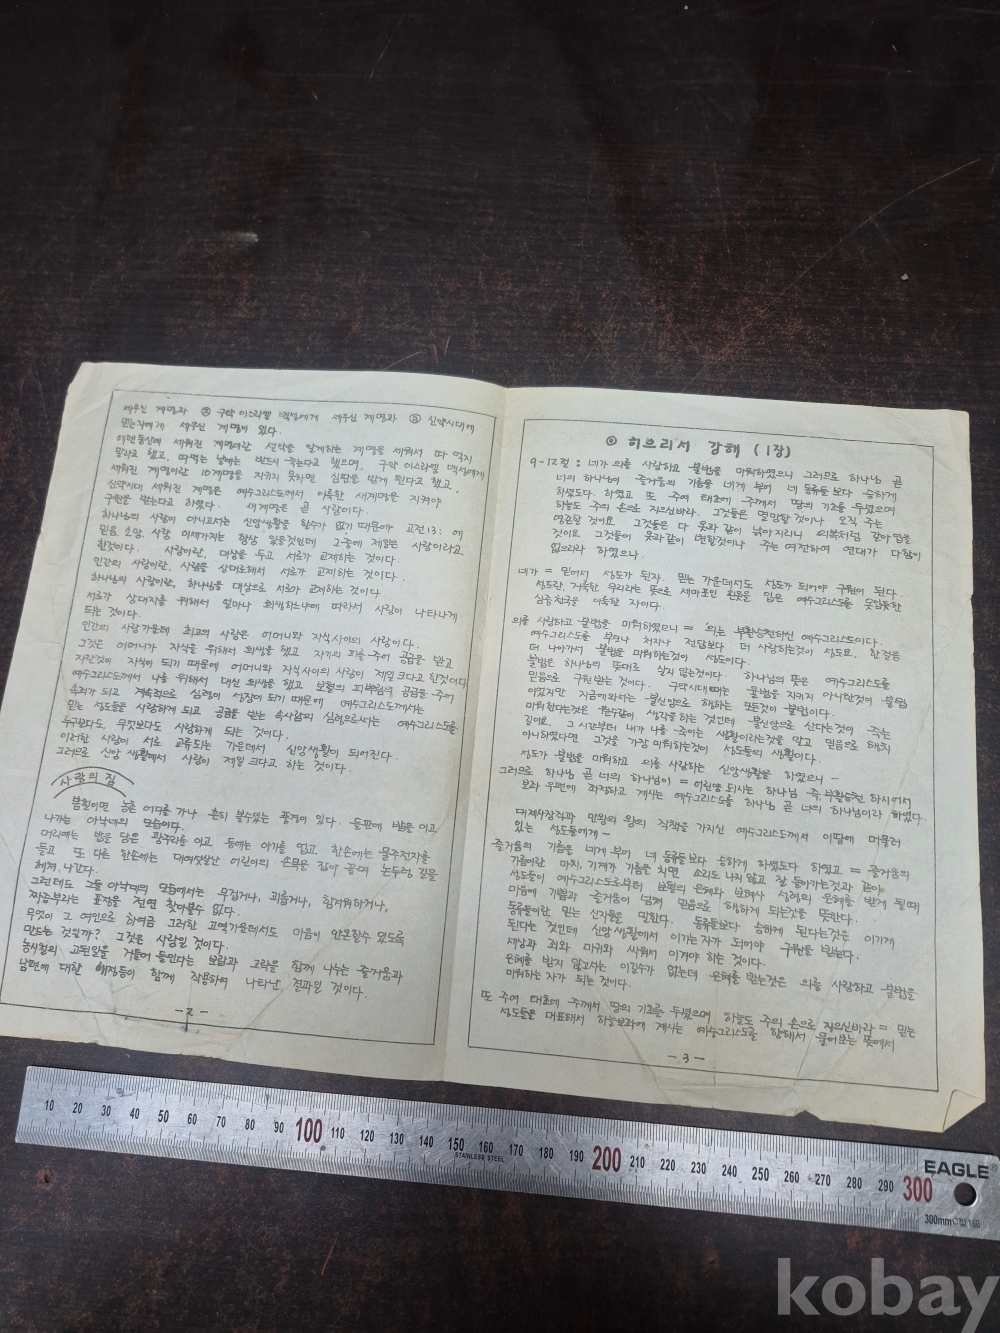 세우신 계명과 ② 구약 이스라엘 백성에게 세우신 계명과 ③ 신약시대에
믿는자에게 세우신 계명이 있다.
에덴동산에 세워진 계명이란 선악을 알게하는 계명을 세워서 따 먹지
말라고 했고, 따먹는 날에는 반드시 죽는다고 했으며, 구약 이스라엘 백성에게
세워진 계명이란 10계명을 지키지 못하면 심판을 받게 된다고 했고,
신약시대 세워진 계명은 예수그리스도께서 이룩한 새계명을 지켜야
구원을 받는다고 하였다. 새계명은 곧 사랑이다.
하나님의 사랑이 아니고서는 신앙생활을 할수가 없기 때문에 고전13: 에
믿음, 소망, 사랑 이세가지는 항상 있을것인데 그중에 제일은 사랑이라고
한것이다. 사랑이란, 대상을 두고 서로가 교제하는 것이다.
인간의 사랑이란, 사람을 상대로해서 서로가 교제하는 것이다.
하나님의 사랑이란, 하나님을 대상으로 서로가 교제하는 것이다.
서로가 상대자를 위해서 얼마나 희생하느냐에 따라서 사랑이 나타나게
되는 것이다.
인간의 사랑가운데 최고의 사랑은 어머니와 자식사이의 사랑이다.
그것은 어머니가 자식을 위해서 희생을 했고 자기의 피를 주어 공급을 받고
자란것이 자식이 되기 때문에 어머니와 자식사이의 사랑이 제일 크다고 한것이다
예수그리스도께서 나를 위해서 대신 희생을 했고 보혈의 피 공급을 주어
속죄가 되고 계속적으로 심령이 성장이 되기 때문에 예수그리스도께서는
믿는 성도들을 사랑하게 되고 공급을 받는 속사람의 심령으로서는 예수그리스도를
누구보다도, 무엇보다도 사랑하게 되는 것이다.
이러한 사랑이 서로 교류되는 가운데서 신앙생활이 되어진다.
그러므로 신앙 생활에서 사랑이 제일 크다고 하는 것이다.
사랑의 짐
봄철이면 농촌 어디를 가나 흔히 볼수있는 풍경이 있다. 들판에 밥을 이고
나가는 아낙네의 모습이다.
머리에는 밥을 담은 광주리를 이고 등에는 아가를 업고 한손에는 물주전자를
들고 또 다른 한손에는 대여섯살난 어린이의 손목을 잡아 끌며 논두렁 길을
헤쳐 나간다.
그런데도 그들 아낙네의 모습에서는 무겁거나, 괴롭거나, 힘겨워하거나,
짜증부리는 표정을 전연 찾아볼수 없다.
무엇이 그 여인으로 하여금 그러한 고역가운데서도 마음이 안온할수 있도록
만드는 것일까? 그것은 사랑일 것이다.
농사철의 고된일을 거들어 들인다는 보람과 고락을 함께 나누는 즐거움과
남편에 대한 애정등이 함께 작용하여 나타난 결과일 것이다.
-2-
◎ 히브리서 강해 (1장)
9-12절 : 네가 의를 사랑하고 불법을 미워하였으니 그러므로 하나님 곧
너의 하나님이 즐거움의 기름을 네게 부어 네 동류들보다 승하게
하셨도다. 하였고 또 주여 태초에 주께서 땅의 기초를 두셨으며
하늘도 주의 손으로 지으신바라. 그것들은 멸망할 것이나 오직 주는
영존할 것이요 그것들은 다 옷과 같이 낡아지리니 의복처럼 갈아입을
것이요 그것들이 옷과같이 변할것이나 주는 여전하여 연대가 다함이
없으리라 하였으나
네가 = 믿어서 성도가 된자. 믿는 가운데서도 성도가 되어야 구원이 된다.
성도란, 거룩한 무리라는 뜻으로 세마포인 흰옷을 입은 예수그리스도를 옷입듯한
심중천국을 이룩한 자이다.
의를 사랑하고 불법을 미워하였으니 = 의는 부활승천하신 예수그리스도이다.
예수그리스도를 부모나 처자나 전답보다 더 사랑하는것이 성도요, 한걸음
더 나아가서 불법을 미워하는것이 성도이다.
불법은 하나님의 뜻대로 살지 않는것이다. 하나님의 뜻은 예수그리스도를
믿음으로 구원받는 것이다. 구약시대때는 율법을 지키지 아니한것이 불법
이었지만 지금에와서는 불신앙으로 행하는 모든것이 불법이다.
미워한다는것은 원수같이 생각을 하는 것인데 불신앙으로 산다는것이 죽는
길이요, 그 시간부터 내가 나를 죽이는 생활이라는것을 알고 믿음으로 해치
아니하였다면 그것을 가장 미워하는것이 성도들의 생활이다.
성도가 불법을 미워하고 의를 사랑하는 신앙생활을 하였으니 -
그러므로 하나님 곧 너의 하나님이 = 어린양 되시는 하나님 즉, 부활승천 하시어서
보좌 우편에 좌정하고 계시는 예수그리스도를 하나님 곧 너의 하나님이라 하였다.
대제사장직과 만왕의 왕의 직책을 가지신 예수그리스도께서 이땅에 머물러
있는 성도들에게 -
즐거움의 기름을 네게 부어 네 동류들보다 승하게 하셨도다 하였고 = 즐거움의
기름이란 마치, 기계가 기름을 치면 소리도 나지 않고 잘 돌아가는것과 같이
성도들이 예수그리스도로부터 보혈의 은혜와 보혜사 성령의 은혜를 받게 될때
마음에 기쁨과 즐거움이 넘쳐 믿음으로 행하게 되는것을 뜻한다.
동류들이란 믿는 신자들을 말한다. 동류들보다 승하게 된다는것은 이기게
된다는 것인데 신앙생활에서 이기는자가 되어야 구원을 받는다.
세상과 죄와 마귀와 싸워서 이겨야 하는 것이다.
은혜를 받지 않고서는 이길수가 없는데 은혜를 받는것은 의를 사랑하고 불법을
미워하는 자가 되는 것이다.
또 주여 태초에 주께서 땅의 기초를 두셨으며 하늘도 주의 손으로 지으신바라 = 믿는
성도들을 대표해서 하늘보좌에 계시는 예수그리스도를 향해서 물어보는 뜻에서
-3-
10 20 30 40 50 60 70 80 90 100 110 120 130 140 150 160 170 180 190 200 210 220 230 240 250 260 270 280 290 300
STAINLESS STEEL
EAGLE®
300mm C형 1급
kobay